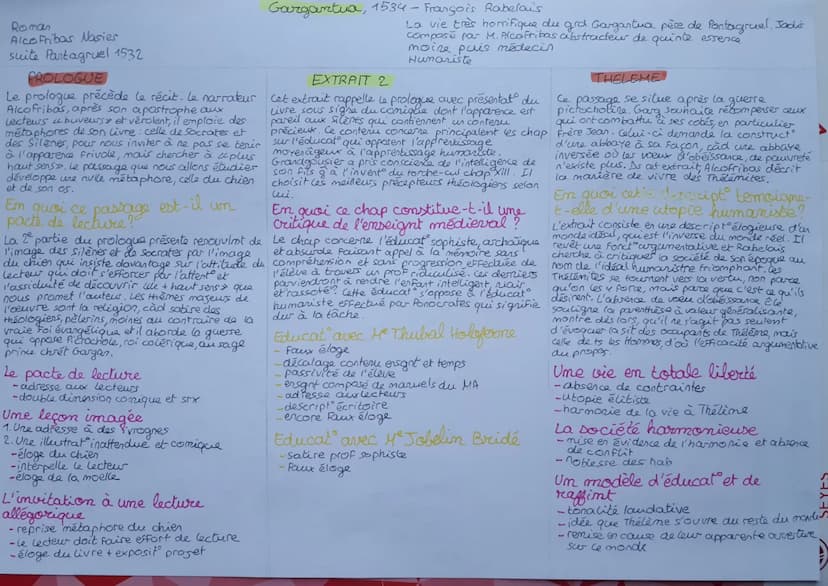 Gargantua, 1534 - François Rabelais
Roman
Alcofribas Nasier
suite Pantagruel 1532
La vie très horrifique du grd Gargantua père de Pantagruel. Jadis
composé par M. Alcofribas abstracteur de quinte essence
moine puis médecin
Humaniste
PROLOGUE
Le prologue précède le récit. Le narrateur
Alcofribas, après son apostrophe aux
lecteurs « buveurs » et vérolent, il emploie des
métaphores de son livre : celle de Socrates et
des Silènes, pour nous inviter à ne pas se tenir
à l'apparence frivole, mais chercher à « plus
haut sens ». Le passage que nous allons étudier
développe une nvlle métaphore, celle du chien
et de son os.
En quoi ce passage est-il un
pacte de lecture ?
La 2e partie du prologue présente renouvlmt de
l'image des silènes et de Socrates par l'image
du chien qui insiste davantage sur l'attitude du
lecteur qui doit s'efforcer par l'attent° et
l'assiduité de découvrir le « + haut sens » que
nous promet l'auteur. Les thèmes majeurs de
l'œuvre sont la religion, càd satire des
théologiens, pélerins, moines au contraire de la
vraie foi évangélique et il aborde la guerre
qui oppose Picrochole, roi colérique, au sage
prince chrét Gargan.
Le pacte de lecture
- adresse aux lecteurs
- double dimension comique et srx
Une leçon imagée
1. Une adresse à des ivrognes
2. Une illustrat° inattendue et comique
- éloge du chien
- interpelle le lecteur
- éloge de la moelle
L'invitation à une lecture
allégorique
- reprise métaphore du chien
- le lecteur doit faire effort de lecture
- éloge du livre + exposit° projet
EXTRAIT 2
Cet extrait rappelle le prologue avec présentat° du
livre sous signe du comique dont l'apparence est
pareil aux silènes qui contiennent un contenu
précieux. Ce contenu concerne principalement les chap
sur l'éducat° qui opposent l'apprentissage
moyenâgeux à l'apprentissage humaniste.
Grandgousier a pris conscience de l'intelligence de
son fils g à l'invent° du torche-cul chap XIII. Il
choisit les meilleurs précepteurs théologiens selon
lui.
En quoi ce chap constitue-t-il une
critique de l'enseignt médieval ?
Le chap concerne l'éducat° sophiste, archaïque
et absurde faisant appel à la mémoire sans
compréhension et sans progression effectuée de
l'élève à travers un prof ridiculisé. Ces derniers
parviendront à rendre l'enfant intelligent, niair
et rassoté. Cette éducat° s'oppose à l'éducat°
humaniste effectué par Ponocrates qui signifie
dur à la tâche.
Educat° avec Me Thubal Holoferne
- faux éloge
- décalage contenu ensgnt et temps
- passivité de l'élève
- ensgnt composé de manuels du MA
- adresse aux lecteurs
- descript° écritoire
- encore faux éloge
Educat° avec Me Jobelin Bridé
- satire prof sophiste
- faux éloge
THELEME
Ce passage se situe après la guerre
picrocholine Garg souhaite récompenser ceux
qui ont combattu à ses cotés, en particulier
Frère Jean. Celui-ci demande la construct°
d'une abbaye à sa façon, càd une abbaye
inversée où le vœu d'obéissance, de pauvreté
n'existe plus. Ds cet extrait, Alcofribas décrit
la manière de vivre des Thélèmites.
En quoi cette descript° temoigne-
t-elle d'une utopie humaniste ?
L'extrait consiste en une descript° élogieuse d'un
monde idéal, qui est l'inverse du monde réel. Il
revêt une fonct° argumentative et Rabelais
cherche à critiquer la société de son époque au
nom de l'idéal humaniste triomphant. Les
Thélèmites se tournent vers la vertu, non parce
qu'on les y force, mais parce que c'est ce qu'ils
désirent. L'absence de vœu d'obéissance
souligne la parenthèse à valeur généralisante,
montre dès lors, qu'il ne s'agit pas seulemt
d'évoquer la sit des occupants de Thélème, mais
celle de ts les Hommes, d'où l'efficacité argumentative
du propos.
Une vie en totale liberté
- absence de contraintes
- utopie élitiste
- harmonie de la vie à Thélème
La société harmonieuse
- mise en évidence de l'harmonie et absence
de conflit
- noblesse des hab
Un modèle d'éducat° et de
raffimt
- tonalité laudative
- idée que Thélème s'ouvre du reste du monde
- remise en cause de leur apparente ouverture
sur le monde